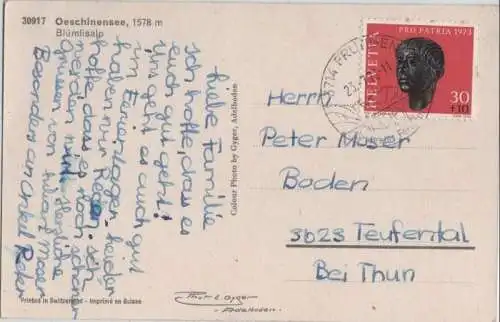 30917 Oeschinensee, 1578 m
Blümlisalp
Liebe Familie
Ich hoffe, dass es
euch gut geht!
Uns geht es auch gut
im Ferienlager. Leider
haben wir Regen. Ich
hoffe, dass es noch schöner
werden wird. Herzliche
Grüsse von
Besonders an Onkel Peter
Colour Photo by Gyger, Adelboden
PRO PATRIA 1973
HELVETIA
30
+10
3714 FRUTIGEN
Herrn
Peter Moser
Boden
3623 Teufental
Bei Thun
Phot. E. Gyger
Adelboden
Printed in Switzerland - Imprimé en Suisse